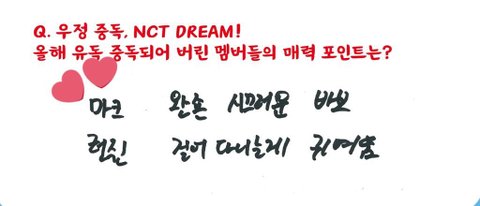 Q. 우정 중독, NCT DREAM!
올해 유독 중독되어 버린 멤버들의 매력 포인트는?
마크 완죤 시끄러운 바보
런쥔 걸어 다니는게 귀여움